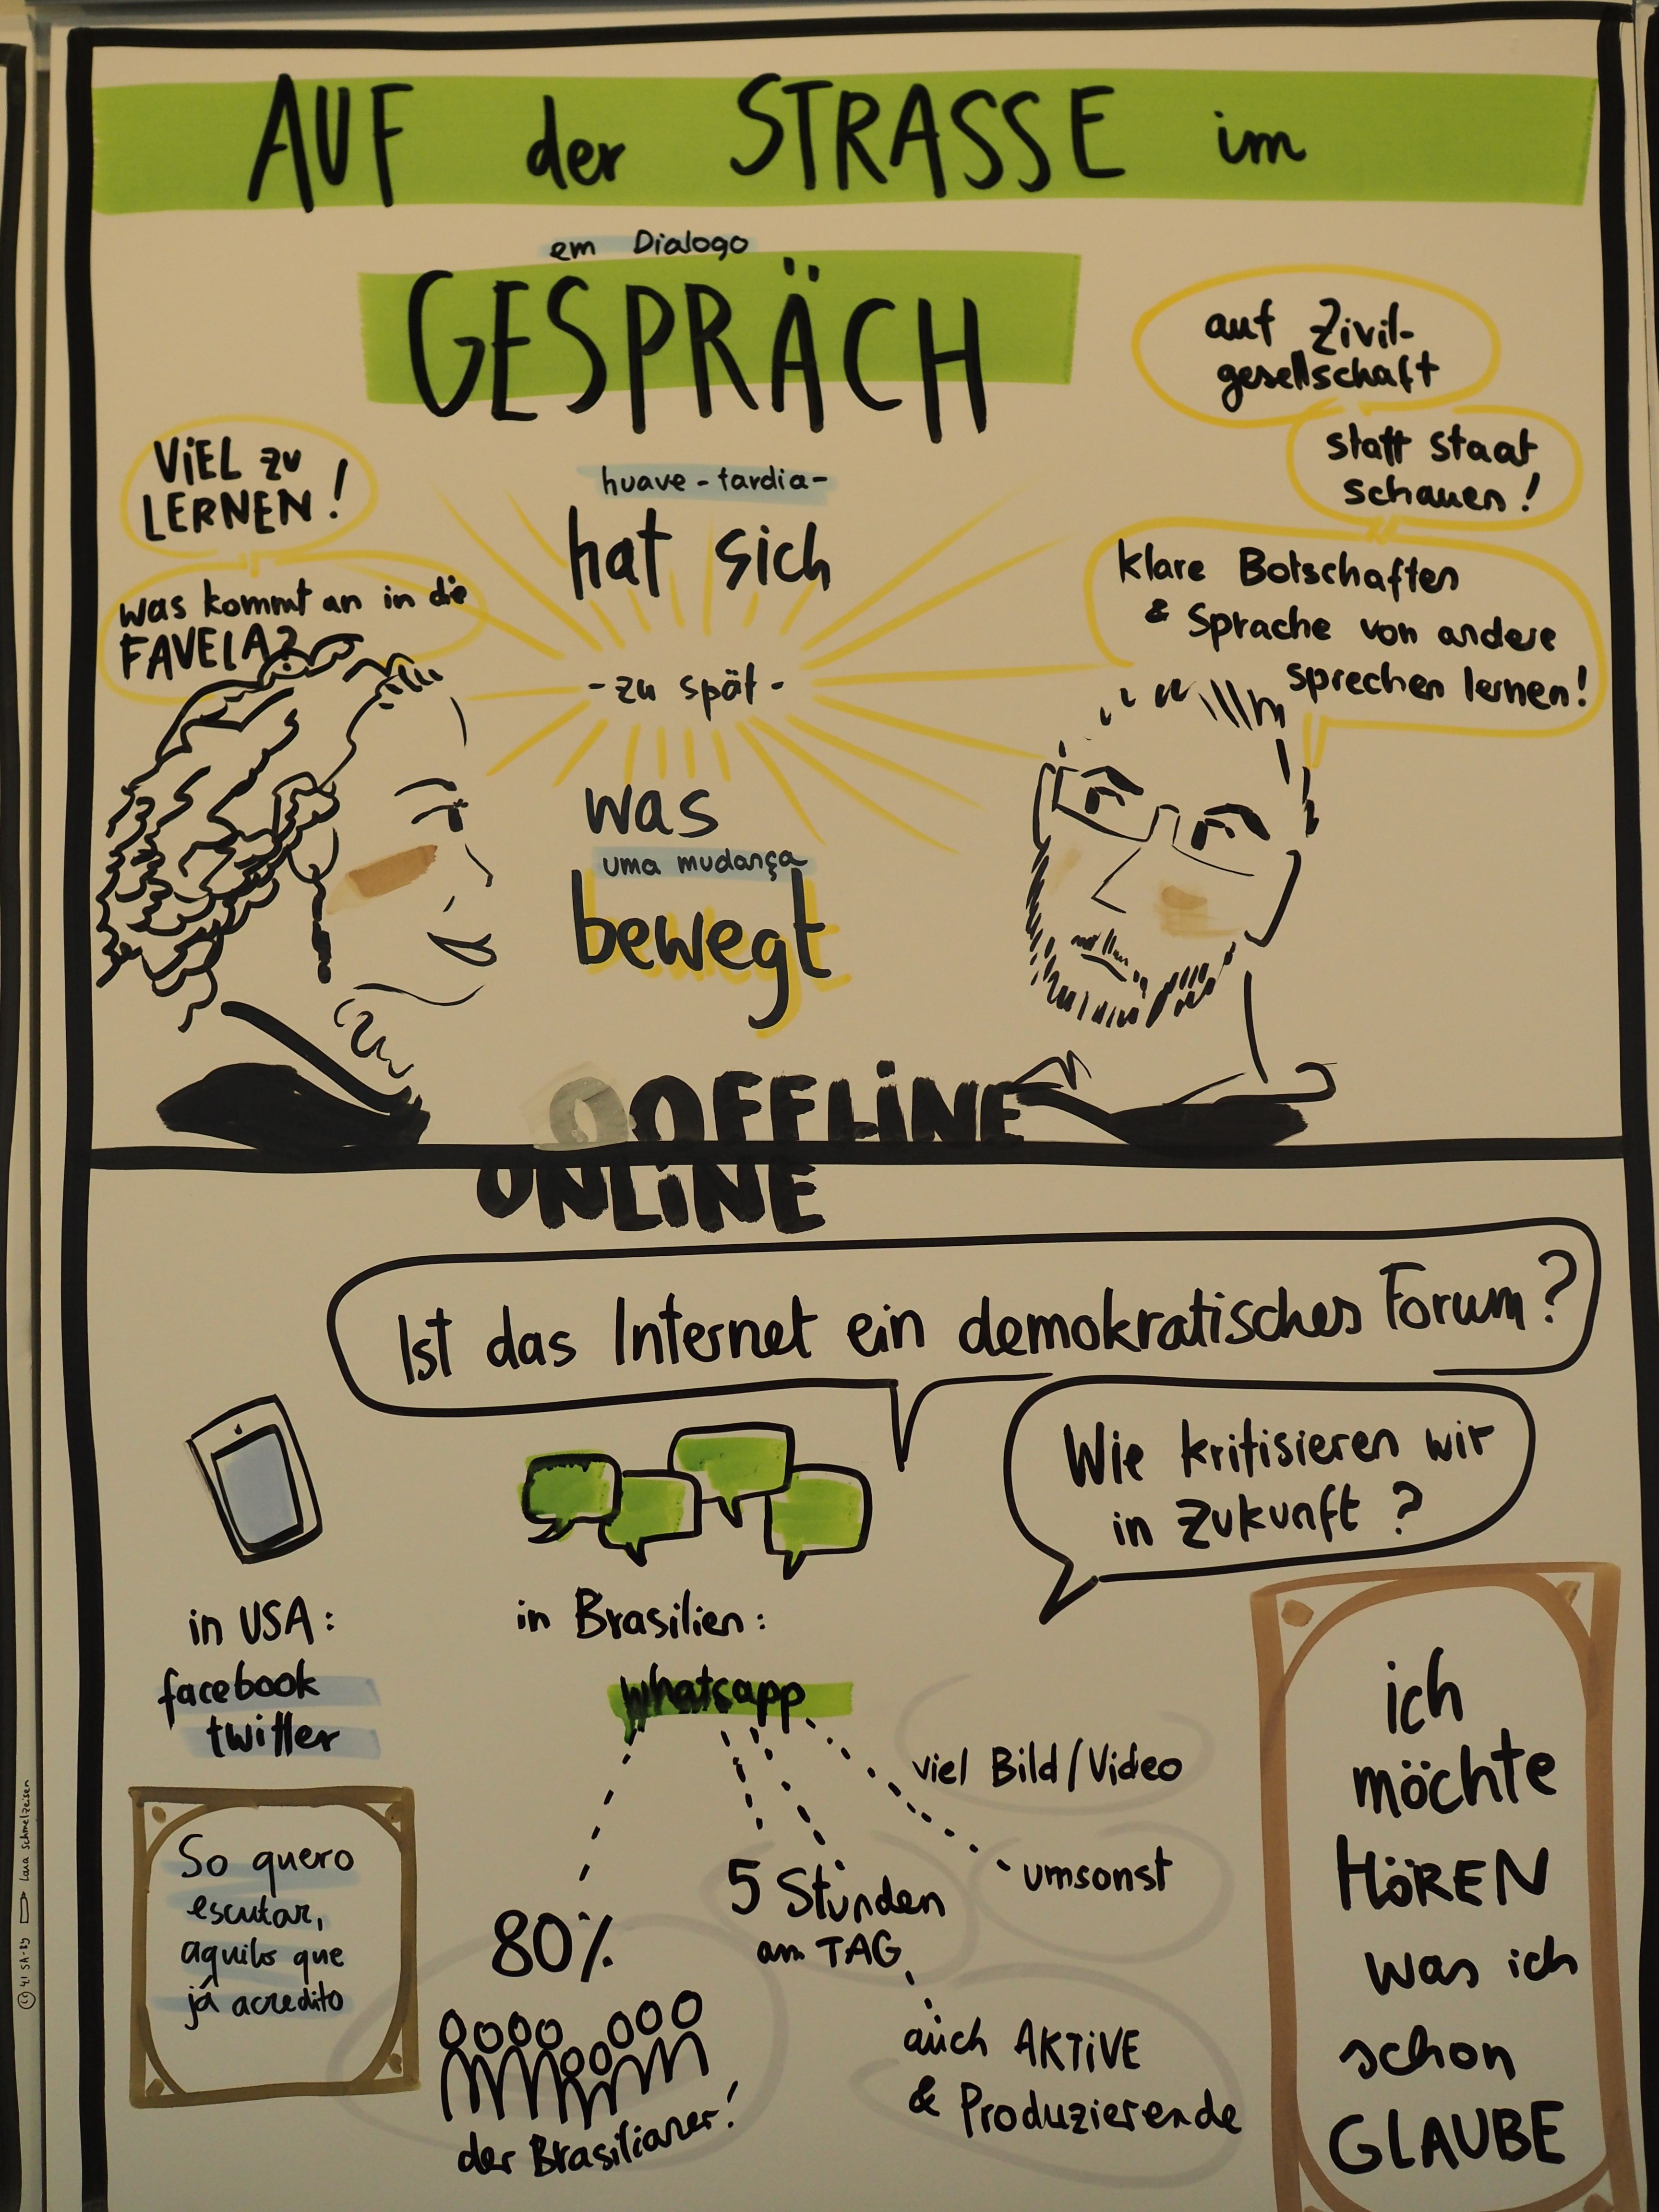 AUF der STRASSE im
em Dialogo
GESPRÄCH
auf Zivil-
gesellschaft
statt staat
schauen!
klare Botschaften
& Sprache von andere
sprechen lernen!
VIEL zu
LERNEN!
was kommt an in die
FAVELA?
huave - tardia -
hat sich
- zu spät -
was
uma mudança
bewegt
OOFFLINE
ONLINE
Ist das Internet ein demokratisches Forum?
Wie kritisieren wir
in Zukunft?
in USA:
facebook
twitter
in Brasilien:
whatsapp
viel Bild/Video
umsonst
5 Stunden
am TAG
auch AKTIVE
& Produzierende
80%
der Brasilianer!
So quero
escutar,
aquilo que
já acredito
ich
möchte
HÖREN
was ich
schon
GLAUBE
4.1 SA-BY Lara Schmelzeisen